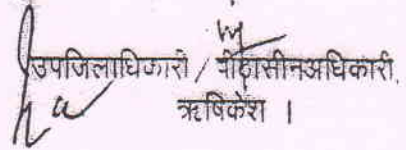 उपजिलाधिकारी / पीठासीनअधिकारी,
ऋषिकेश ।